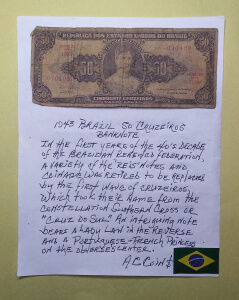 REPUBLICA DOS ESTADOS UNIDOS DO BRASIL
50 50
CINCOENTA CRUZEIROS
1943 BRAZIL 50 CRUZEIROS
BANKNOTE
IN THE FIRST YEARS OF THE 40'S DECADE
OF THE BRAZILIAN FEDERATION,
A VARIETY OF THE REIS NOTES AND
COINAGE WAS RETIRED TO BE REPLACED
BY THE FIRST WAVE OF CRUZEIROS,
WHICH TOOK THEIR NAME FROM THE
CONSTELLATION SOUTHERN CROSS OR
"CRUZ DO SUL". AN INTRIGUING NOTE
BEARS A LADY LAW IN THE REVERSE
AND A PORTUGUESE-FRENCH PRINCESS
ON THE OBVERSE CENTER.